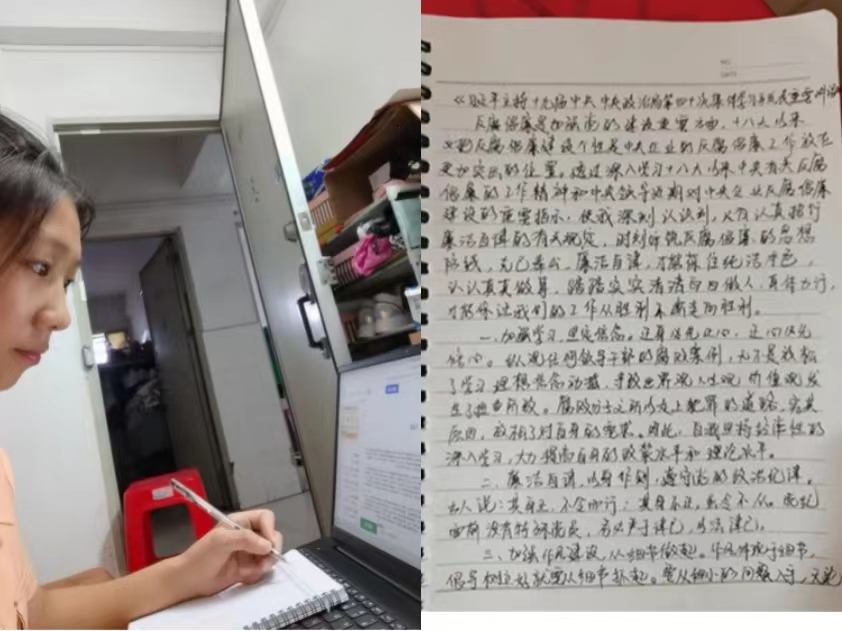 NO.
DATE
《习近平主持十九届中央中央政治局第四十次集体学习并发表重要讲话
反腐倡廉是加强党的建设重要方面,十八大以来
反腐倡廉建设个性是中央企业的反腐倡廉工作放在
更加突出的位置。通过深入学习十八大以来中央有关反腐
倡廉的工作精神和中央领导近期对中央企业反腐倡廉
建设的重要指示,使我深刻认识到,只有认真践行
廉洁自律的有关规定,时刻筑反腐倡廉的思想
防线,克己奉公,廉洁自律,才能保住纯洁本色,
认认真真做事,踏踏实实清清白白做人,身体力行,
才能保证我们的工作从胜利不断走向胜利。
一、加强学习,坚定信念。正身必先正心,正心必先
修心。纵观任何领导干部的腐败案例,无不是放松
了学习理想信念动摇,导致世界观人生观价值观发
生了扭曲所致。腐败分子之所以走上犯罪的道路,究其
原因,放松了对自身的要求。因此,自我坚持经常性的
深入学习,大力提高自身的政策水平和理论水平。
二、廉洁自律,以身作则,遵守党的政治纪律。
古人说:其身正,不令而行;其身不正,虽令不从。党纪
面前没有特殊党员,务必严于律己,
三、加强作风建设,从细节做起。作风体现于细节,
倡导树立好就要从细节抓起。要从细小的问题入手,无论